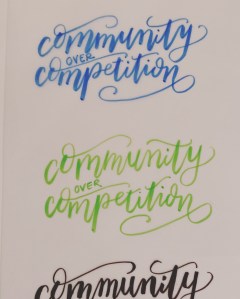 community
over
competition
community
over
competition
community